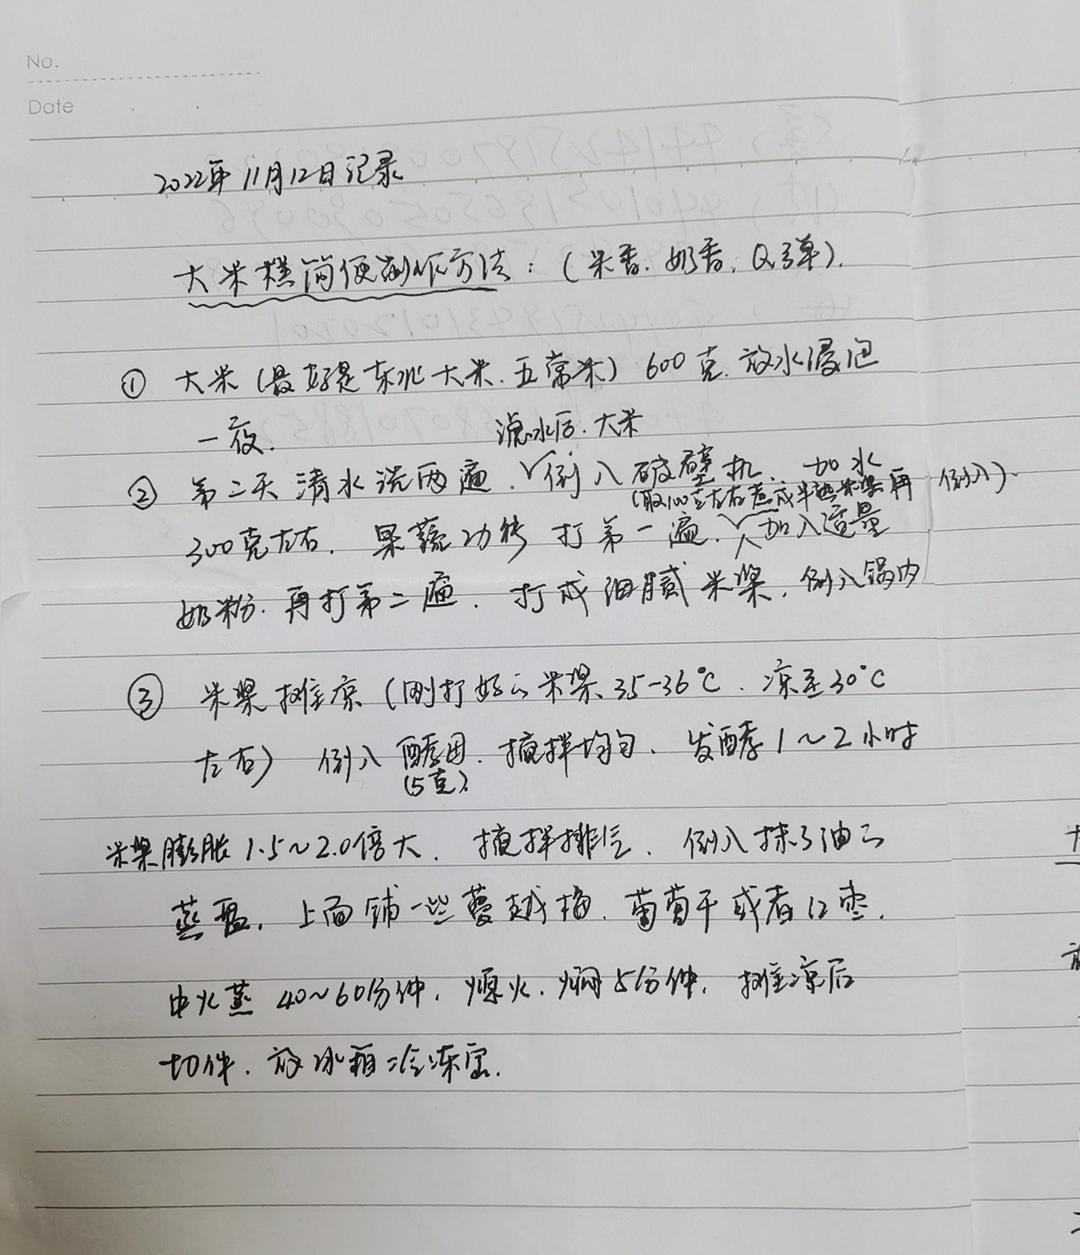 No.
Date
2022年11月12日记录
大米糕简便制作方法：（米香、奶香，Q弹）.
① 大米（最好是东北大米、五常米）600克，放水浸泡
一夜.
滤水后，大米
② 第二天清水洗两遍，倒入破壁机，加水
（取100克左右煮成半熟米浆再倒入）.
300克左右，果蔬功能打第一遍，加入适量
奶粉，再打第二遍，打成细腻米浆，倒入锅内
③ 米浆摊凉（刚打好的米浆35-36℃，凉至30℃
左右）倒入酵母，搅拌均匀，发酵1～2小时
（5克）
米浆膨胀1.5～2.0倍大，搅拌排气，倒入抹了油的
蒸盘，上面铺一些蔓越梅，葡萄干或者红枣.
中火蒸40～60分钟，熄火，焖5分钟，摊凉后
切件，放冰箱冷冻室.